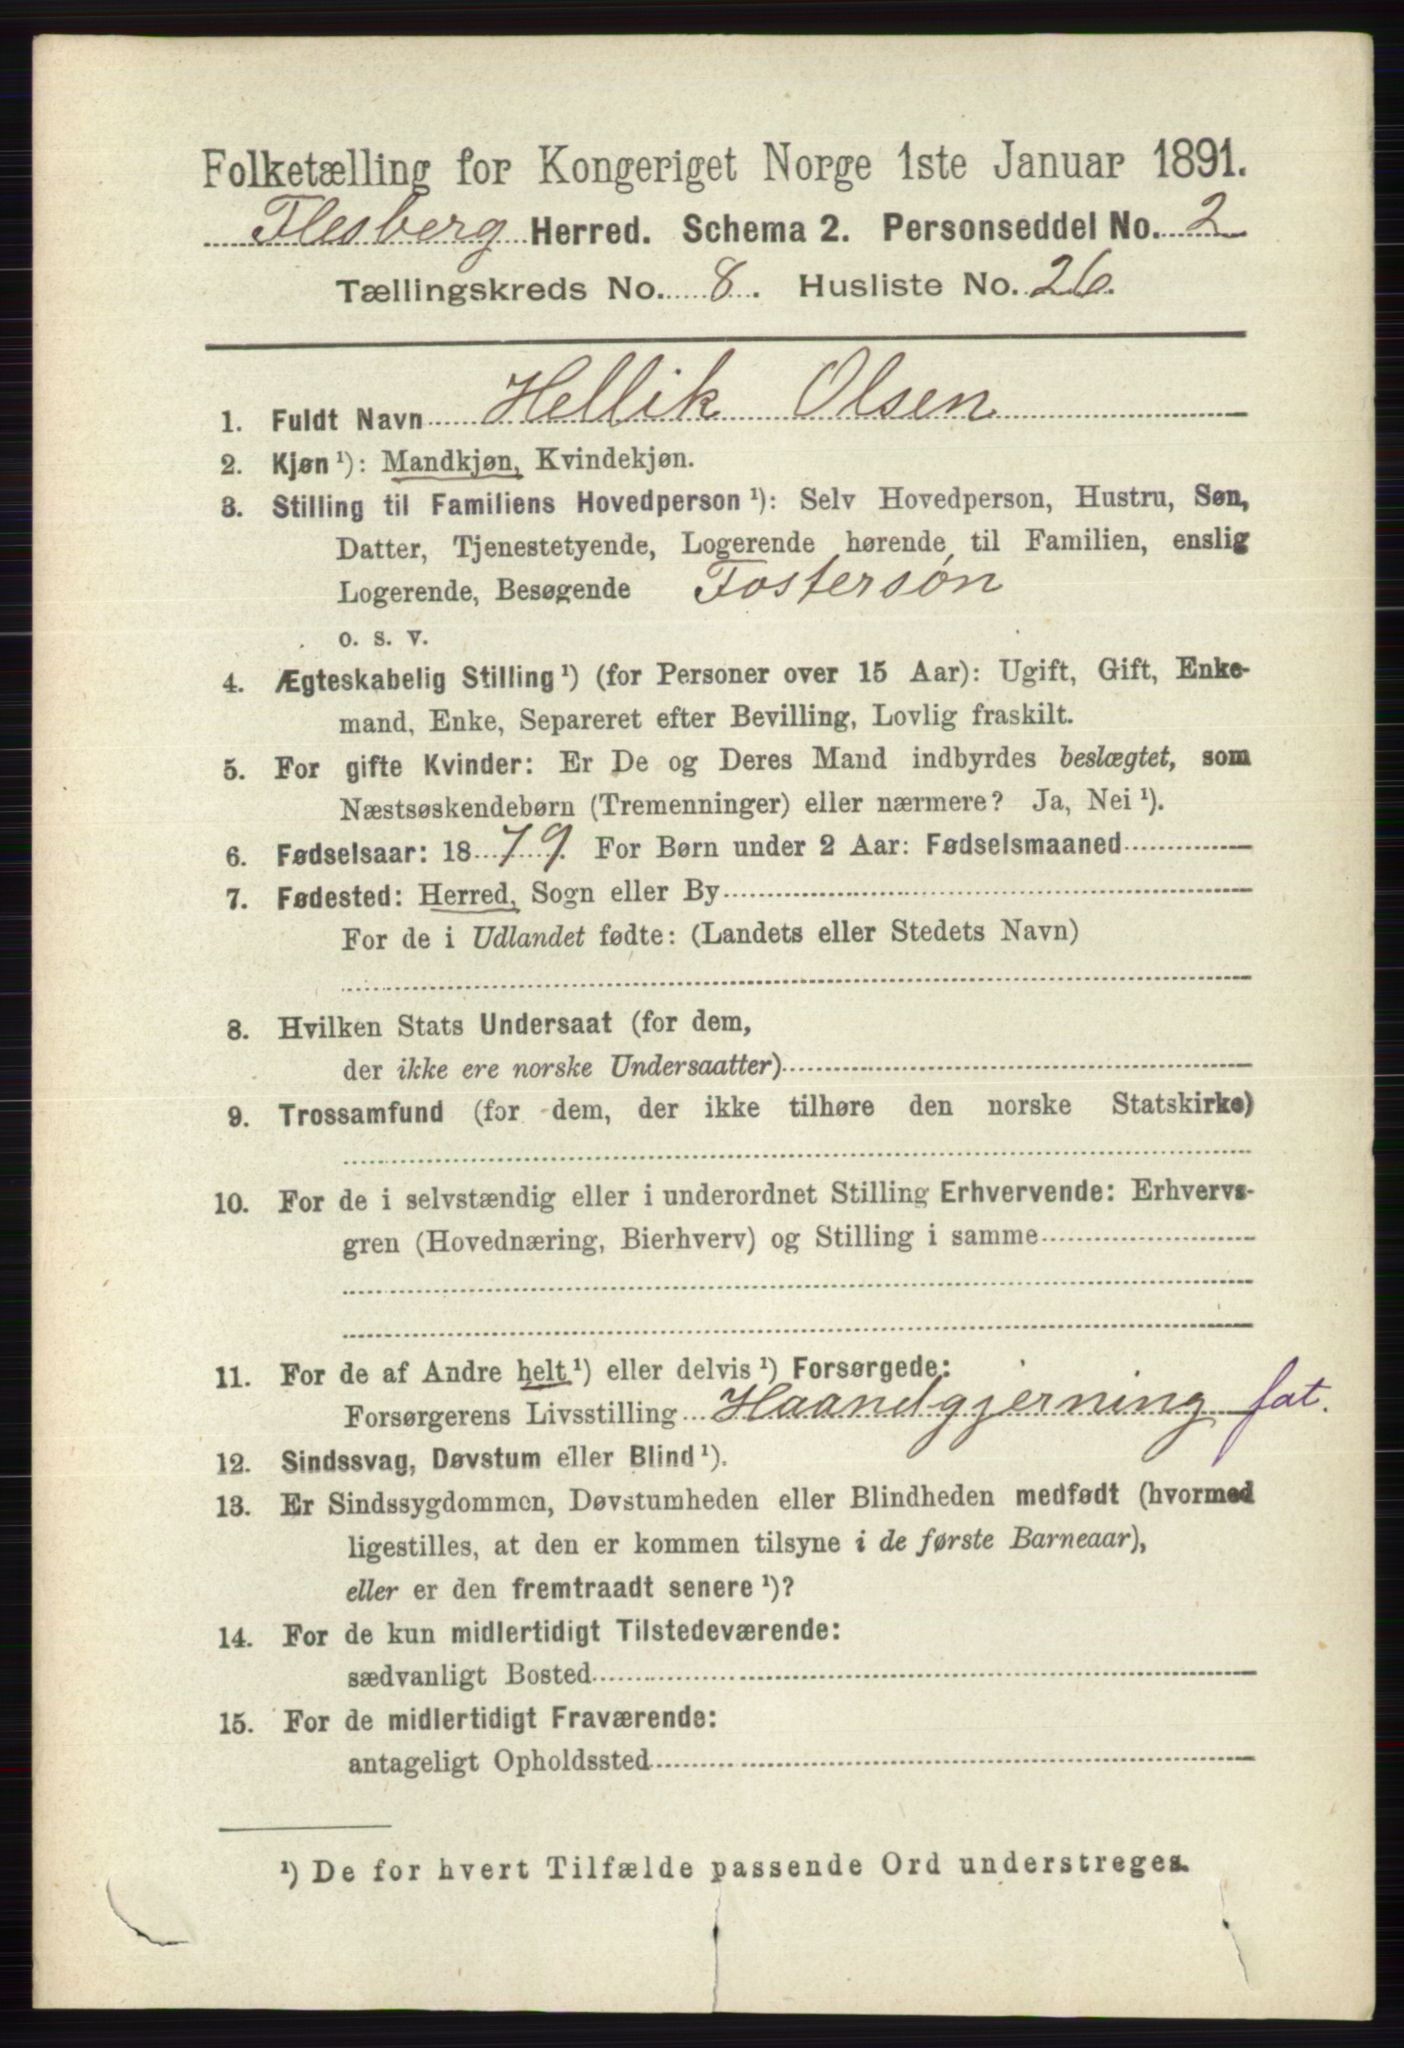 Folketælling for Kongeriget Norge 1ste Januar 1891.
Flesberg Herred. Schema 2. Personseddel No. 2
Tællingskreds No. 8. Husliste No. 26.
1. Fuldt Navn Hellik Olsen
2. Kjøn ¹): Mandkjøn, Kvindekjøn.
3. Stilling til Familiens Hovedperson ¹): Selv Hovedperson, Hustru, Søn,
Datter, Tjenestetyende, Logerende hørende til Familien, enslig
Logerende, Besøgende Fostersøn
o. s. v.
4. Ægteskabelig Stilling ¹) (for Personer over 15 Aar): Ugift, Gift, Enke-
mand, Enke, Separeret efter Bevilling, Lovlig fraskilt.
5. For gifte Kvinder: Er De og Deres Mand indbyrdes beslægtet, som
Næstsøskendebørn (Tremenninger) eller nærmere? Ja, Nei ¹).
6. Fødselsaar: 1879. For Børn under 2 Aar: Fødselsmaaned
7. Fødested: Herred, Sogn eller By
For de i Udlandet fødte: (Landets eller Stedets Navn)
8. Hvilken Stats Undersaat (for dem,
der ikke ere norske Undersaatter)
9. Trossamfund (for dem, der ikke tilhøre den norske Statskirke)
10. For de i selvstændig eller i underordnet Stilling Erhvervende: Erhvervs-
gren (Hovednæring, Bierhverv) og Stilling i samme
11. For de af Andre helt ¹) eller delvis ¹) Forsørgede:
Forsørgerens Livsstilling Haandgjerning fat.
12. Sindssvag, Døvstum eller Blind ¹).
13. Er Sindssygdommen, Døvstumheden eller Blindheden medfødt (hvormed
ligestilles, at den er kommen tilsyne i de første Barneaar),
eller er den fremtraadt senere ¹)?
14. For de kun midlertidigt Tilstedeværende:
sædvanligt Bosted
15. For de midlertidigt Fraværende:
antageligt Opholdssted
¹) De for hvert Tilfælde passende Ord understreges.